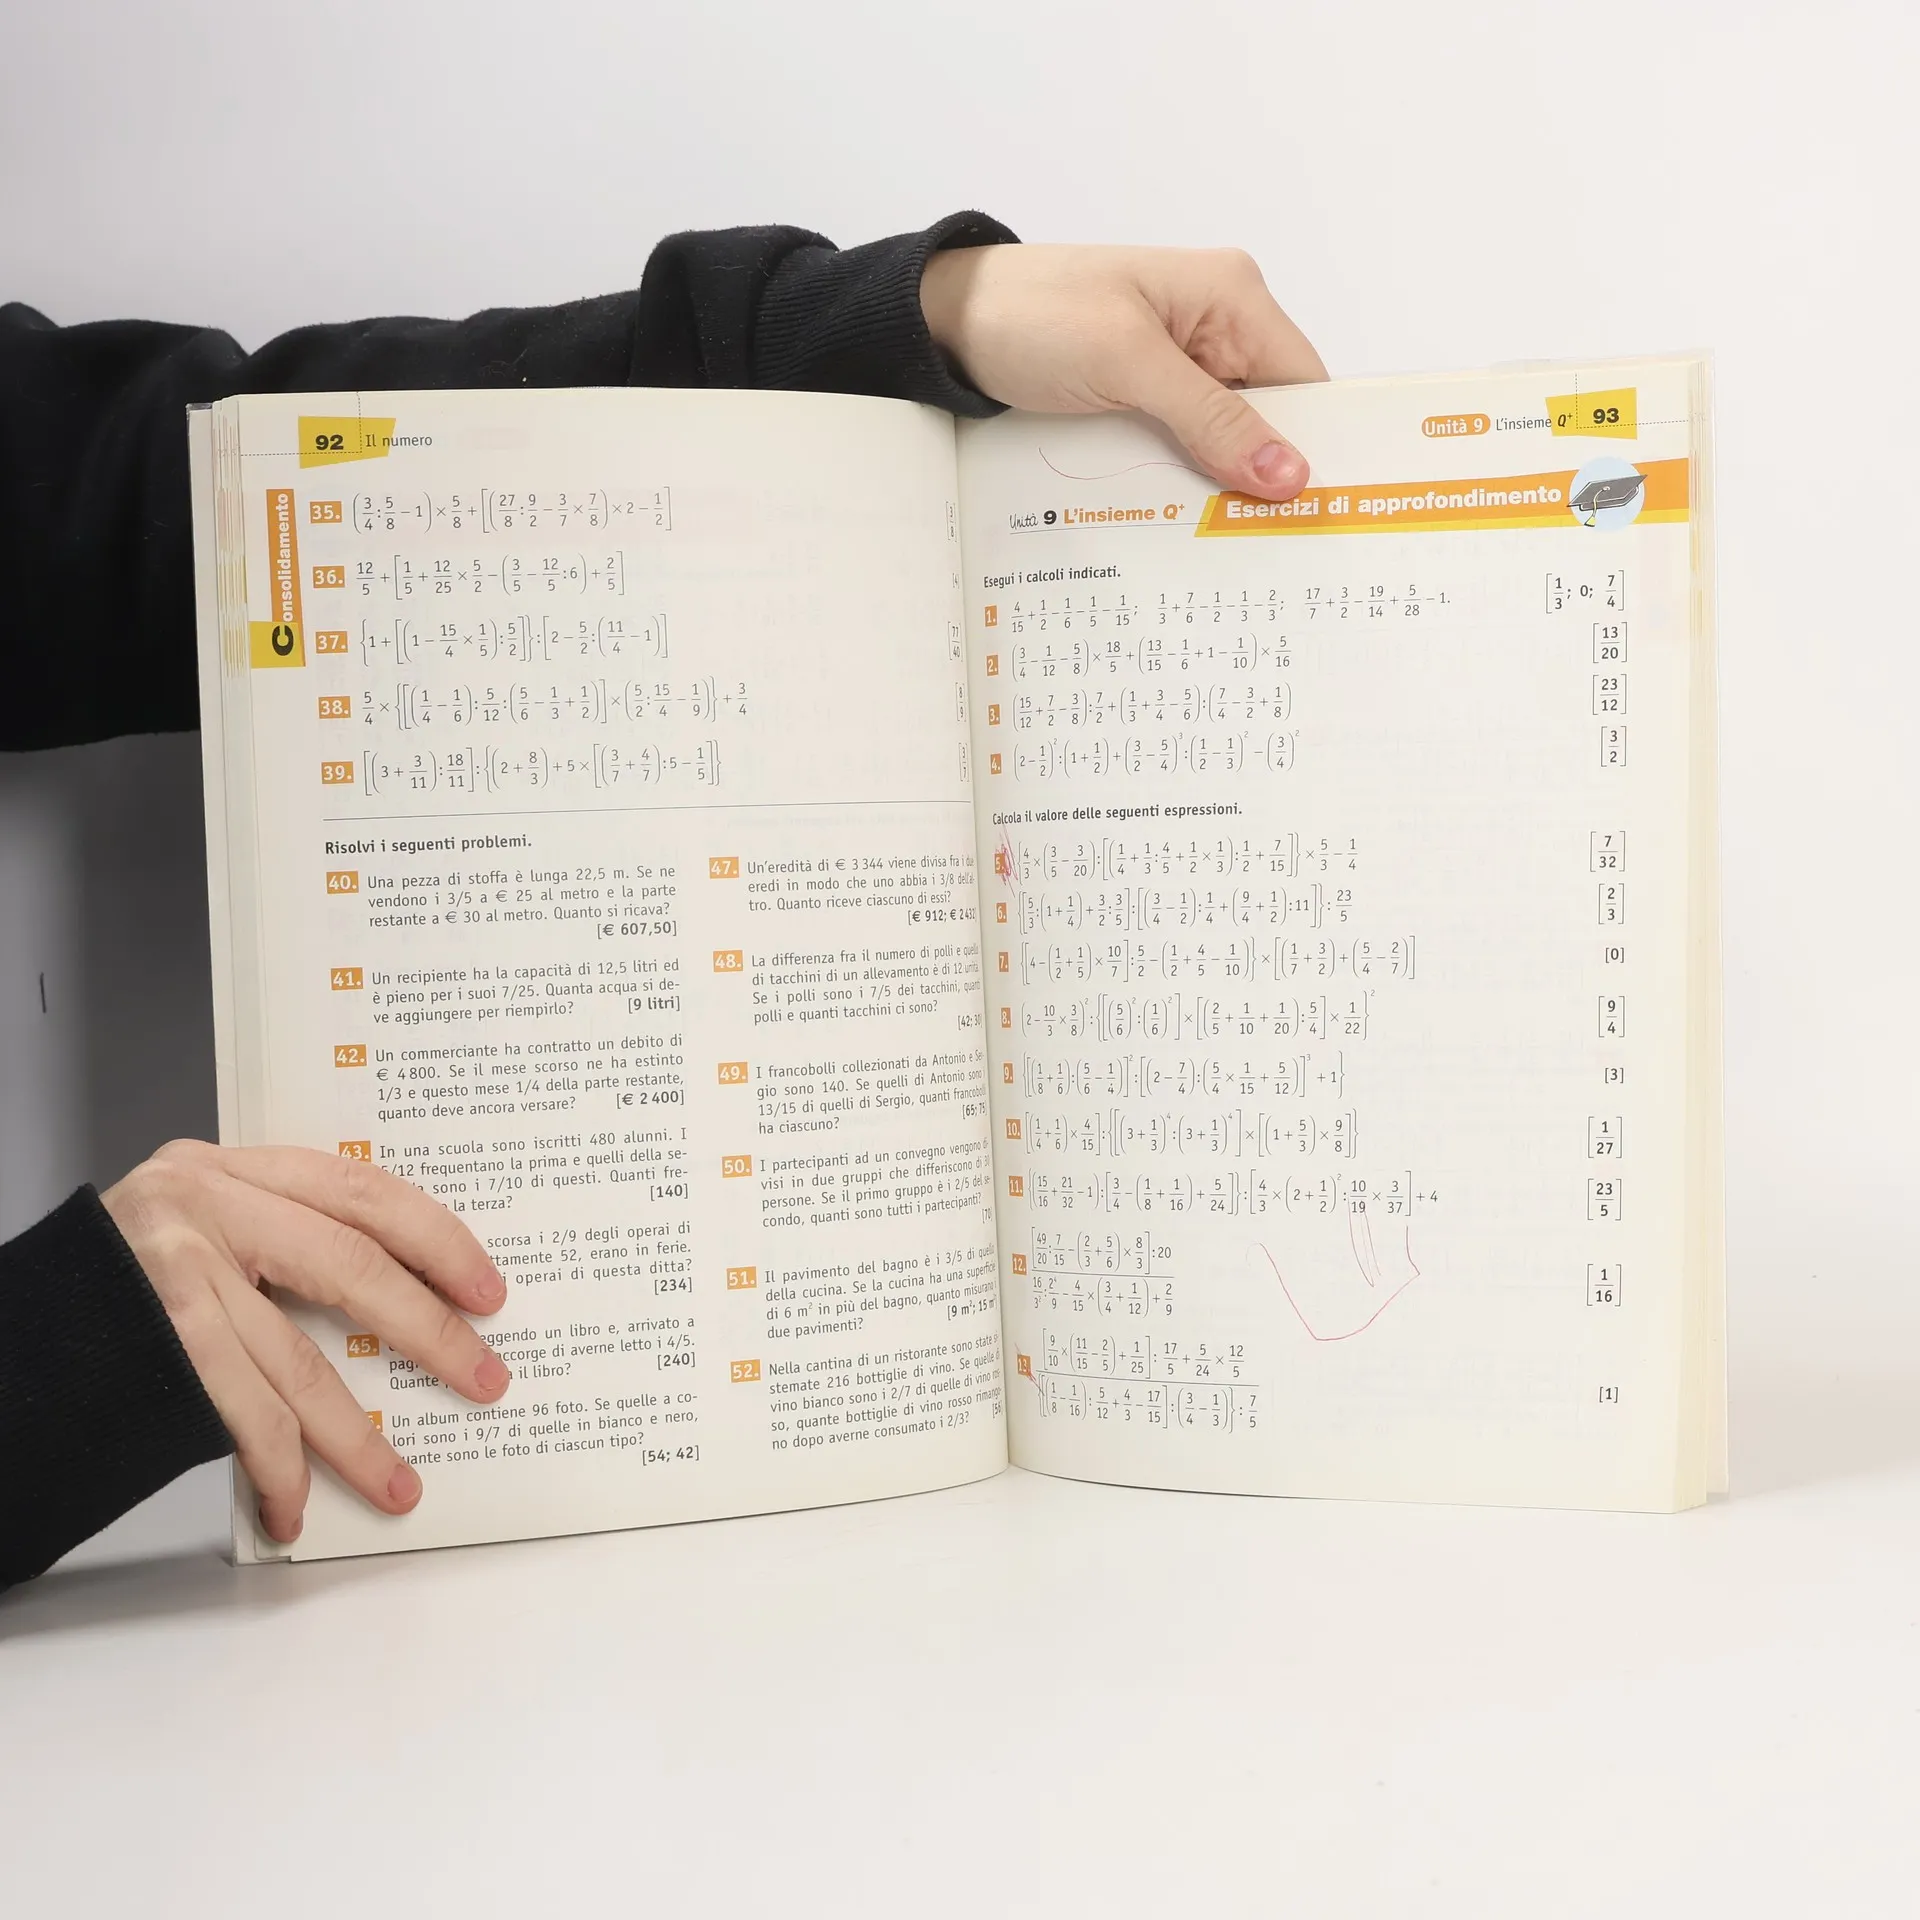 92 Il numero
Consolidamento
35. (3/4 : 5/8 − 1) × 5/8 + [(27/8 : 9/2 − 3/7 × 7/8) × 2 − 1/2] [3/8]
36. 12/5 + [1/5 + 12/25 × 5/2 − (3/5 − 12/5 : 6) + 2/5] [4]
37. {1 + [(1 − 15/4 × 1/5) : 5/2]} : [2 − 5/2 : (11/4 − 1)] [77/40]
38. 5/4 × {[(1/4 − 1/6) : 5/12 : (5/6 − 1/3 + 1/2)] × (5/2 : 15/4 − 1/9)} + 3/4 [8/9]
39. [(3 + 3/11) : 18/11] : {(2 + 8/3) + 5 × [(3/7 + 4/7) : 5 − 1/5]} [3/7]
Risolvi i seguenti problemi.
40. Una pezza di stoffa è lunga 22,5 m. Se ne
vendono i 3/5 a € 25 al metro e la parte
restante a € 30 al metro. Quanto si ricava?
[€ 607,50]
41. Un recipiente ha la capacità di 12,5 litri ed
è pieno per i suoi 7/25. Quanta acqua si de-
ve aggiungere per riempirlo? [9 litri]
42. Un commerciante ha contratto un debito di
€ 4 800. Se il mese scorso ne ha estinto
1/3 e questo mese 1/4 della parte restante,
quanto deve ancora versare? [€ 2 400]
43. In una scuola sono iscritti 480 alunni. I
5/12 frequentano la prima e quelli della se-
sono i 7/10 di questi. Quanti fre-
la terza? [140]
scorsa i 2/9 degli operai di
ttamente 52, erano in ferie.
i operai di questa ditta?
[234]
45. eggendo un libro e, arrivato a
pag. accorge di averne letto i 4/5.
Quante il libro? [240]
Un album contiene 96 foto. Se quelle a co-
lori sono i 9/7 di quelle in bianco e nero,
quante sono le foto di ciascun tipo?
[54; 42]
47. Un'eredità di € 3 344 viene divisa fra i due
eredi in modo che uno abbia i 3/8 dell'al-
tro. Quanto riceve ciascuno di essi?
[€ 912; € 2 432]
48. La differenza fra il numero di polli e quello
di tacchini di un allevamento è di 12 unità.
Se i polli sono i 7/5 dei tacchini, quanti
polli e quanti tacchini ci sono?
[42; 30]
49. I francobolli collezionati da Antonio e Ser-
gio sono 140. Se quelli di Antonio sono i
13/15 di quelli di Sergio, quanti francobolli
ha ciascuno? [65; 75]
50. I partecipanti ad un convegno vengono di-
visi in due gruppi che differiscono di 30
persone. Se il primo gruppo è i 2/5 del se-
condo, quanti sono tutti i partecipanti?
[70]
51. Il pavimento del bagno è i 3/5 di quello
della cucina. Se la cucina ha una superficie
di 6 m² in più del bagno, quanto misurano i
due pavimenti? [9 m²; 15 m²]
52. Nella cantina di un ristorante sono state si-
stemate 216 bottiglie di vino. Se quelle di
vino bianco sono i 2/7 di quelle di vino ros-
so, quante bottiglie di vino rosso rimango-
no dopo averne consumato i 2/3? [56]
Unità 9 L'insieme Q⁺ 93
Unità 9 L'insieme Q⁺ Esercizi di approfondimento
Esegui i calcoli indicati.
1. 4/15 + 1/2 − 1/6 − 1/5 − 1/15; 1/3 + 7/6 − 1/2 − 1/3 − 2/3; 17/7 + 3/2 − 19/14 + 5/28 − 1. [1/3; 0; 7/4]
2. (3/4 − 1/12 − 5/8) × 18/5 + (13/15 − 1/6 + 1 − 1/10) × 5/16 [13/20]
3. (15/12 + 7/2 − 3/8) : 7/2 + (1/3 + 3/4 − 5/6) : (7/4 − 3/2 + 1/8) [23/12]
4. (2 − 1/2)² : (1 + 1/2) + (3/2 − 5/4)³ : (1/2 − 1/3)² − (3/4)² [3/2]
Calcola il valore delle seguenti espressioni.
5. {4/3 × (3/5 − 3/20) : [(1/4 + 1/3 : 4/5 + 1/2 × 1/3) : 1/2 + 7/15]} × 5/3 − 1/4 [7/32]
6. {[5/3 : (1 + 1/4) + 3/2 : 3/5] : [(3/4 − 1/2) : 1/4 + (9/4 + 1/2) : 11]} : 23/5 [2/3]
7. {[4 − (1/2 + 1/5) × 10/7] : 5/2 − (1/2 + 4/5 − 1/10)} × [(1/7 + 3/2) + (5/4 − 2/7)] [0]
8. (2 − 10/3 × 3/8)² : {[(5/6)² : (1/6)²] × [(2/5 + 1/10 + 1/20) : 5/4] × 1/22}² [9/4]
9. {[(1/8 + 1/6) : (5/6 − 1/4)]² : [(2 − 7/4) : (5/4 × 1/15 + 5/12)]³ + 1} [3]
10. [(1/4 + 1/6) × 4/15] : {[(3 + 1/3)⁴ : (3 + 1/3)⁴] × [(1 + 5/3) × 9/8]} [1/27]
11. {(15/16 + 21/32 − 1) : [3/4 − (1/8 + 1/16) + 5/24]} : [4/3 × (2 + 1/2)² : 10/19 × 3/37] + 4 [23/5]
12. [49/20 : 7/15 − (2/3 + 5/6) × 8/3] : 20
16/3² : 2⁴/9 − 4/15 × (3/4 + 1/12) + 2/9 [1/16]
13. [9/10 × (11/15 − 2/5) + 1/25] : 17/5 + 5/24 × 12/5
{[(1/8 − 1/16) : 5/12 + 4/3 − 17/15] : (3/4 − 1/3)} : 7/5 [1]